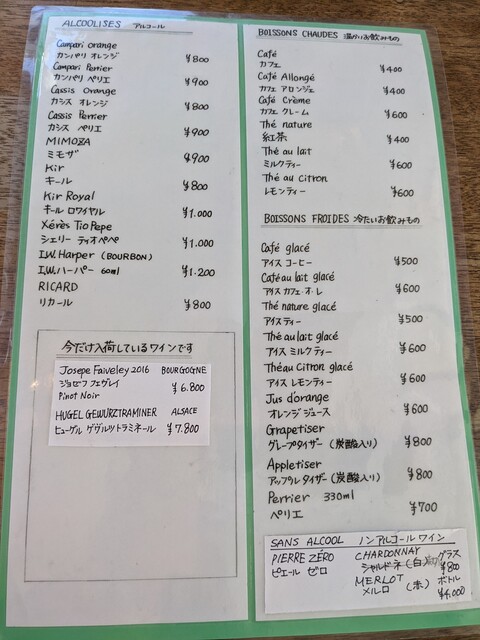 ALCOOLISES アルコール
Campari orange
カンパリ オレンジ ¥800
Campari Perrier
カンパリ ペリエ ¥900
Cassis Orange
カシス オレンジ ¥800
Cassis Perrier
カシス ペリエ ¥900
MIMOZA
ミモザ ¥900
Kir
キール ¥800
Kir Royal
キール ロワイヤル ¥1.000
Xérès Tio Pepe
シェリー ティオペペ ¥1.000
I.W.Harper (BOURBON)
I.W.ハーパー 60ml ¥1.200
RICARD
リカール ¥800
今だけ入荷しているワインです
Josepe Faiveley 2016 BOURGOGNE
ジョセーフ フェヴレイ ¥6.800
Pinot Noir
HUGEL GEWÜRZTRAMINER ALSACE
ヒューゲル ゲヴルツトラミネール ¥7.800
BOISSONS CHAUDES 温かいお飲みもの
Café
カフェ ¥400
Café Allongé
カフェ アロンジェ ¥400
Café Crème
カフェ クレーム ¥600
Thé nature
紅茶 ¥400
Thé au lait
ミルクティー ¥600
Thé au Citron
レモンティー ¥600
BOISSONS FROIDES 冷たいお飲みもの
Café glacé
アイス コーヒー ¥500
Café au lait glacé
アイス カフェ・オ・レ ¥600
Thé nature glacé
アイス ティー ¥500
Thé au lait glacé
アイス ミルクティー ¥600
Thé au Citron glacé
アイス レモンティー ¥600
Jus d'orange
オレンジ ジュース ¥600
Grapetiser
グレープタイザー (炭酸入り) ¥800
Appletiser
アップルタイザー (炭酸入り) ¥800
Perrier 330ml
ペリエ ¥700
SANS ALCOOL ノンアルコールワイン
PIERRE ZÉRO CHARDONNAY グラス
ピエール ゼロ シャルドネ (白) ¥800
MERLOT ボトル
メルロ (赤) ¥4,000